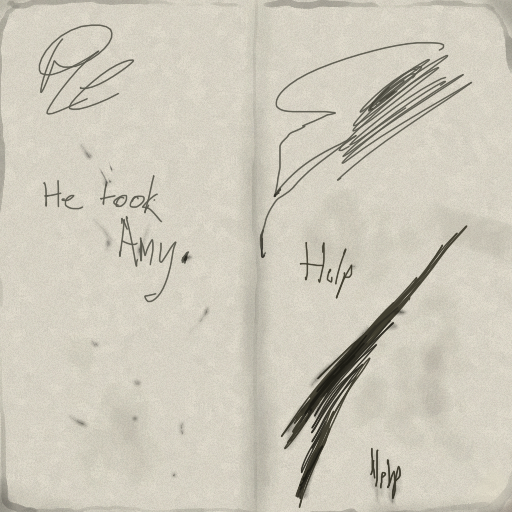 He took
Amy.
Help
Help